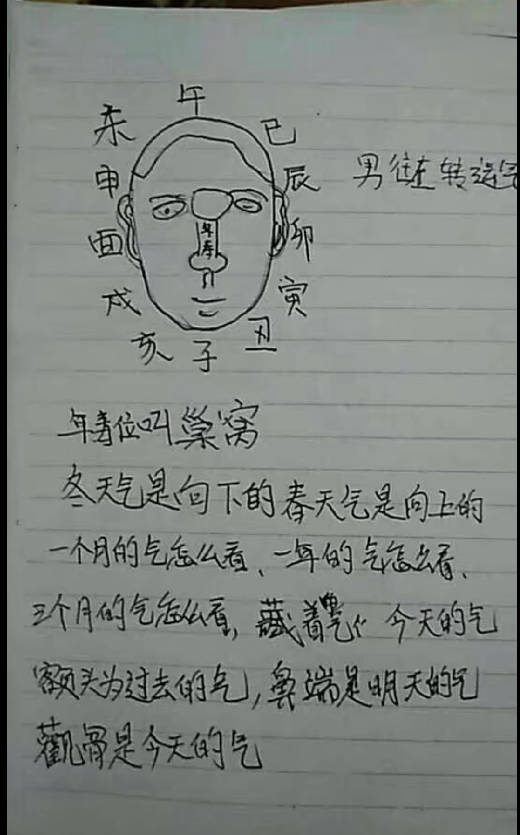 午
未
巳
申
辰
男往左转运气
酉
年寿
卯
戌
寅
亥
子
丑
年寿位叫巢窝
冬天气是向下的春天气是向上的
一个月的气怎么看、一年的气怎么看、
三个月的气怎么看, 藏着 今天的气
额头为过去的气, 鼻端是明天的气
颧骨是今天的气